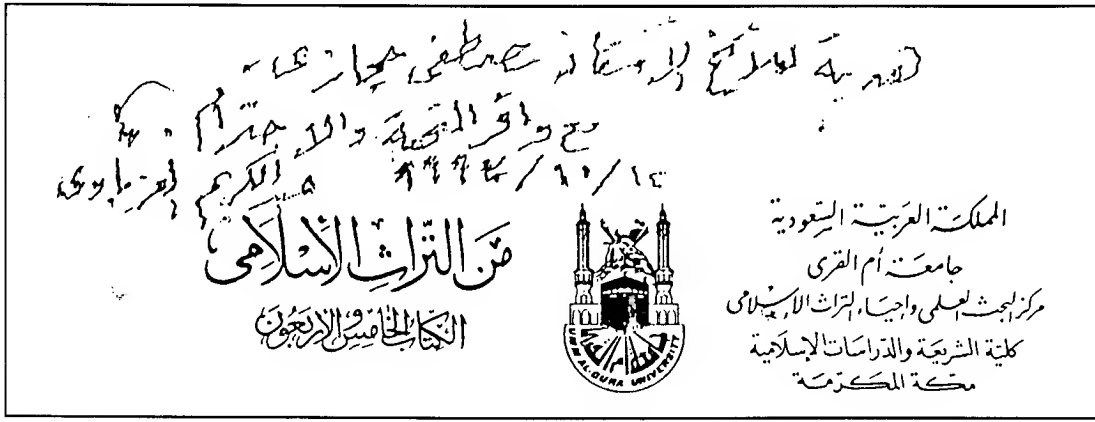 هدية للأخ الأستاذ مصطفى حجازى
مع وافر التحية والاحترام
١٤/١٠/ الكريم العزباوى
المملكة العربية السعودية
جامعة أم القرى
مركز البحث العلمى وإحياء التراث الإسلامى
كلية الشريعة والدراسات الإسلامية
مكة المكرمة
جامعة أم القرى
UMM AL-QURA UNIVERSITY
من التراث الإسلامى
الكتاب الخامس والأربعون